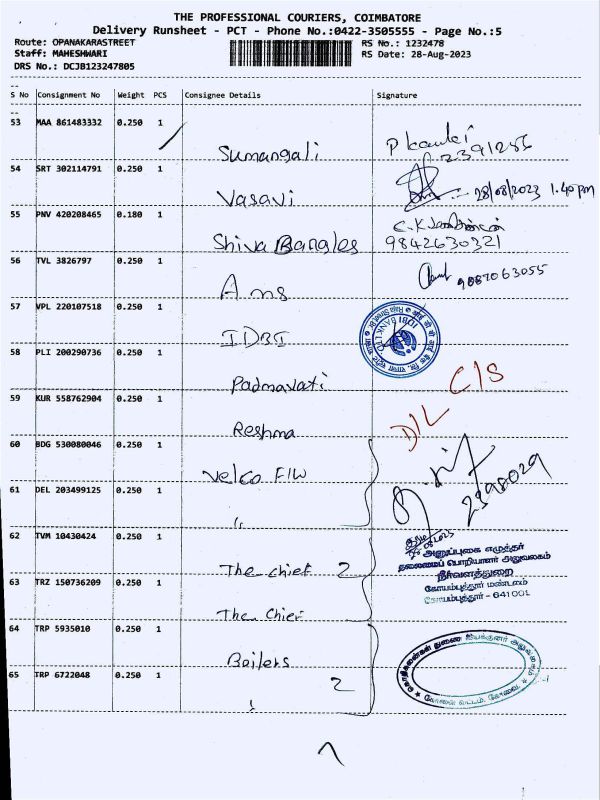 THE PROFESSIONAL COURIERS, COIMBATORE
Delivery Runsheet - PCT - Phone No.:0422-3505555 - Page No.:5
Route: OPANAKARASTREET RS No.: 1232478
Staff: MAHESHWARI RS Date: 28-Aug-2023
DRS No.: DCJB123247805
S No Consignment No Weight PCS Consignee Details Signature
53 MAA 861483332 0.250 1
Sumangali 2391286
54 SRT 302114791 0.250 1
Vasavi 28/08/2023 1.40pm
55 PNV 420208465 0.180 1
Shiva Bangles 9842630321
56 TVL 3826797 0.250 1
Ams 9087063055
57 VPL 220107518 0.250 1
IDBI IDBI BANK LTD
58 PLI 200290736 0.250 1
Padmavati C/S
59 KUR 558762904 0.250 1
Reshma D/L
60 BDG 530080046 0.250 1
Velco F/W
61 DEL 203499125 0.250 1
2398029
62 TVM 10430424 0.250 1
The chief 2
அனுப்புகை எழுத்தர்
தலைமைப் பொறியாளர் அலுவலகம்
நீர்வளத்துறை
கோயம்புத்தூர் மண்டலம்
கோயம்புத்தூர் - 641001
63 TRZ 150736209 0.250 1
The Chief
64 TRP 5935010 0.250 1
Boilers
65 TRP 6722048 0.250 1
2